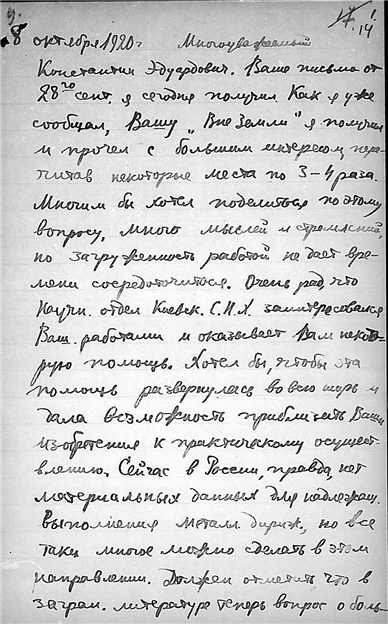 9.
1/14
8 октября 1920 г Многоуважаемый
Константин Эдуардович. Ваше письмо от
28го сент. я сегодня получил Как я уже
сообщал, Вашу „Вне Земли" я получил
и прочел с большим интересом, пере-
читав некоторые места по 3-4 раза.
Многим бы хотел поделиться по этому
вопросу, много мыслей и стремлений,
но загруженность работой не дает вре-
мени сосредоточиться. Очень рад, что
Научн. отдел Киевск. С.Н.Х. заинтересовался
Ваш. работами и оказывает Вам некото-
рую помощь. Хотел бы, чтобы эта
помощь развернулась во всю ширь и
дала возможность приблизить Ваши
изобретения к практическому осущест-
влению. Сейчас в России, правда, нет
материальных данных для надлежащ.
выполнения металл. дириж., но все
таки многое можно сделать в этом
направлении. Должен отметить что в
загран. литературе теперь вопрос о боль-